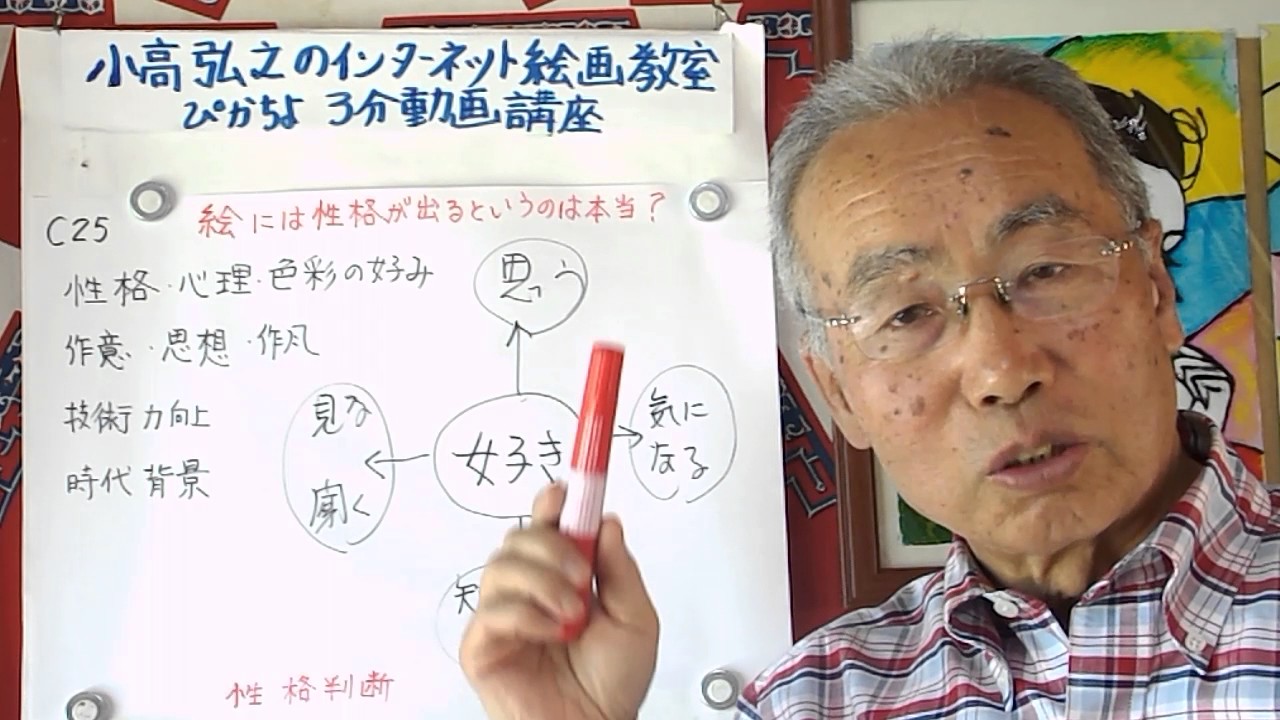 小高弘之のインターネット絵画教室
ぴかちよ 3分動画講座
C25
絵には性格が出るというのは本当?
性格・心理・色彩の好み
作意・思想・作風
技術力向上
時代背景
思う
見る
聞く
好き
気に
なる
知
性格判断